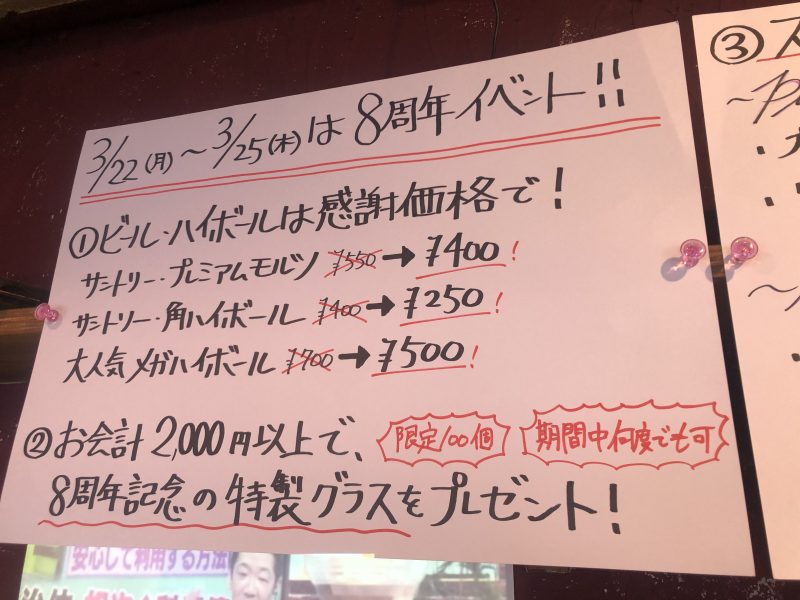 3/22(月)~3/25(木)は8周年イベント!!
①ビール・ハイボールは感謝価格で!
サントリー・プレミアムモルツ ¥550→¥400!
サントリー・角ハイボール ¥400→¥250!
大人気メガハイボール ¥700→¥500!
②お会計2,000円以上で、 限定100個 期間中何度でも可
8周年記念の特製グラスをプレゼント!
③ス
安心して利用する方法